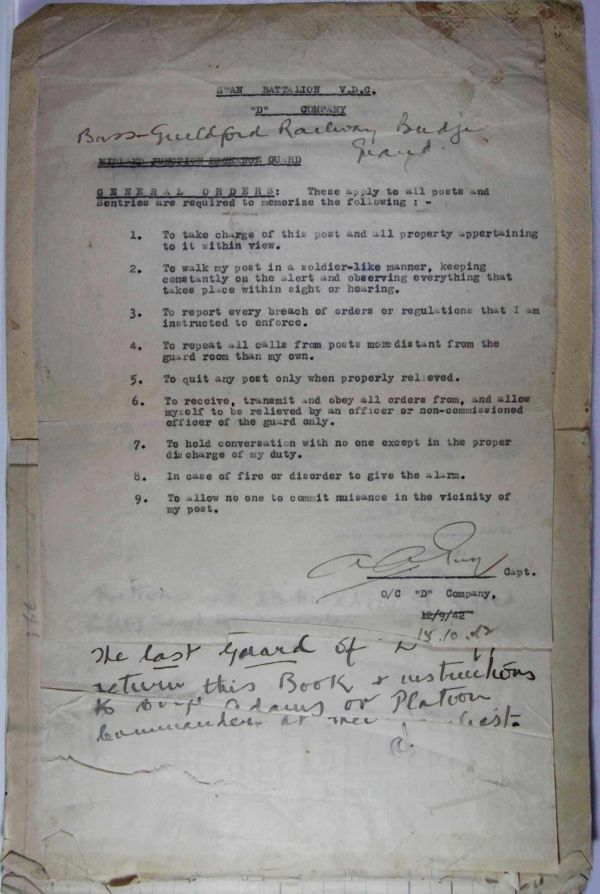 SWAN BATTALION V.D.C.
"D" COMPANY
Bass-Guildford Railway Bridge
Guard.
MIDLAND JUNCTION EXCHANGE GUARD
GENERAL ORDERS: These apply to all posts and
Sentries are required to memorize the following : -
1. To take charge of this post and all property appertaining
to it within view.
2. To walk my post in a soldier-like manner, keeping
constantly on the alert and observing everything that
takes place within sight or hearing.
3. To report every breach of orders or regulations that I am
instructed to enforce.
4. To repeat all calls from posts more distant from the
guard room than my own.
5. To quit any post only when properly relieved.
6. To receive, transmit and obey all orders from, and allow
myself to be relieved by an officer or non-commissioned
officer of the guard only.
7. To hold conversation with no one except in the proper
discharge of my duty.
8. In case of fire or disorder to give the alarm.
9. To allow no one to commit nuisance in the vicinity of
my post.
Capt.
O/C "D" Company,
12/9/42
15.10.42
The last Guard of
return this Book & instructions
to Adams or Platoon
Commander at